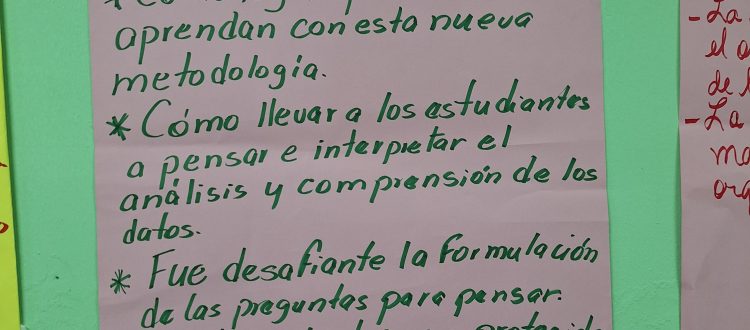 aprendan con esta nueva
metodología.
* Cómo llevar a los estudiantes
a pensar e interpretar el
análisis y comprensión de los
datos.
* Fue desafiante la formulación
de las preguntas para pensar.
- La
el
de
- La